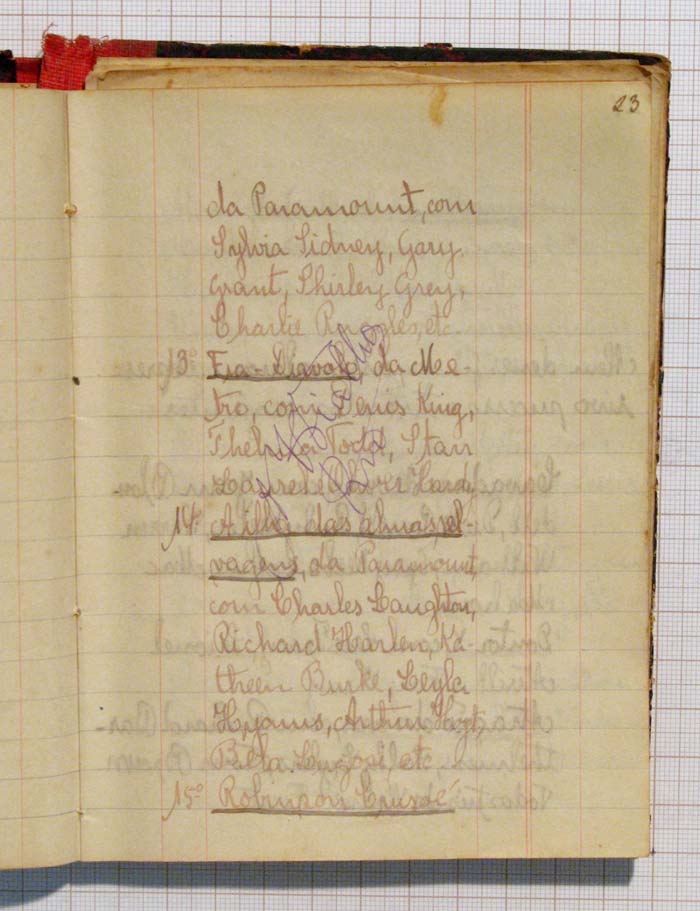 23
da Paramount, com
Sylvia Sidney, Gary
Grant, Shirley Grey,
Charlie Ruggles, etc
13º Fra-Diavolo, da Me-
tro, com Denis King,
Thelma Todd, Stan
Laurel e Oliver Hardy
14º A ilha das almas sel-
vagens, da Paramount,
com Charles Laughton,
Richard Harlen, Ka-
thleen Burke, Leyla
Hyams, Arthur Hoyt,
Bella Lugosi, etc
15º Robinson Crusoé